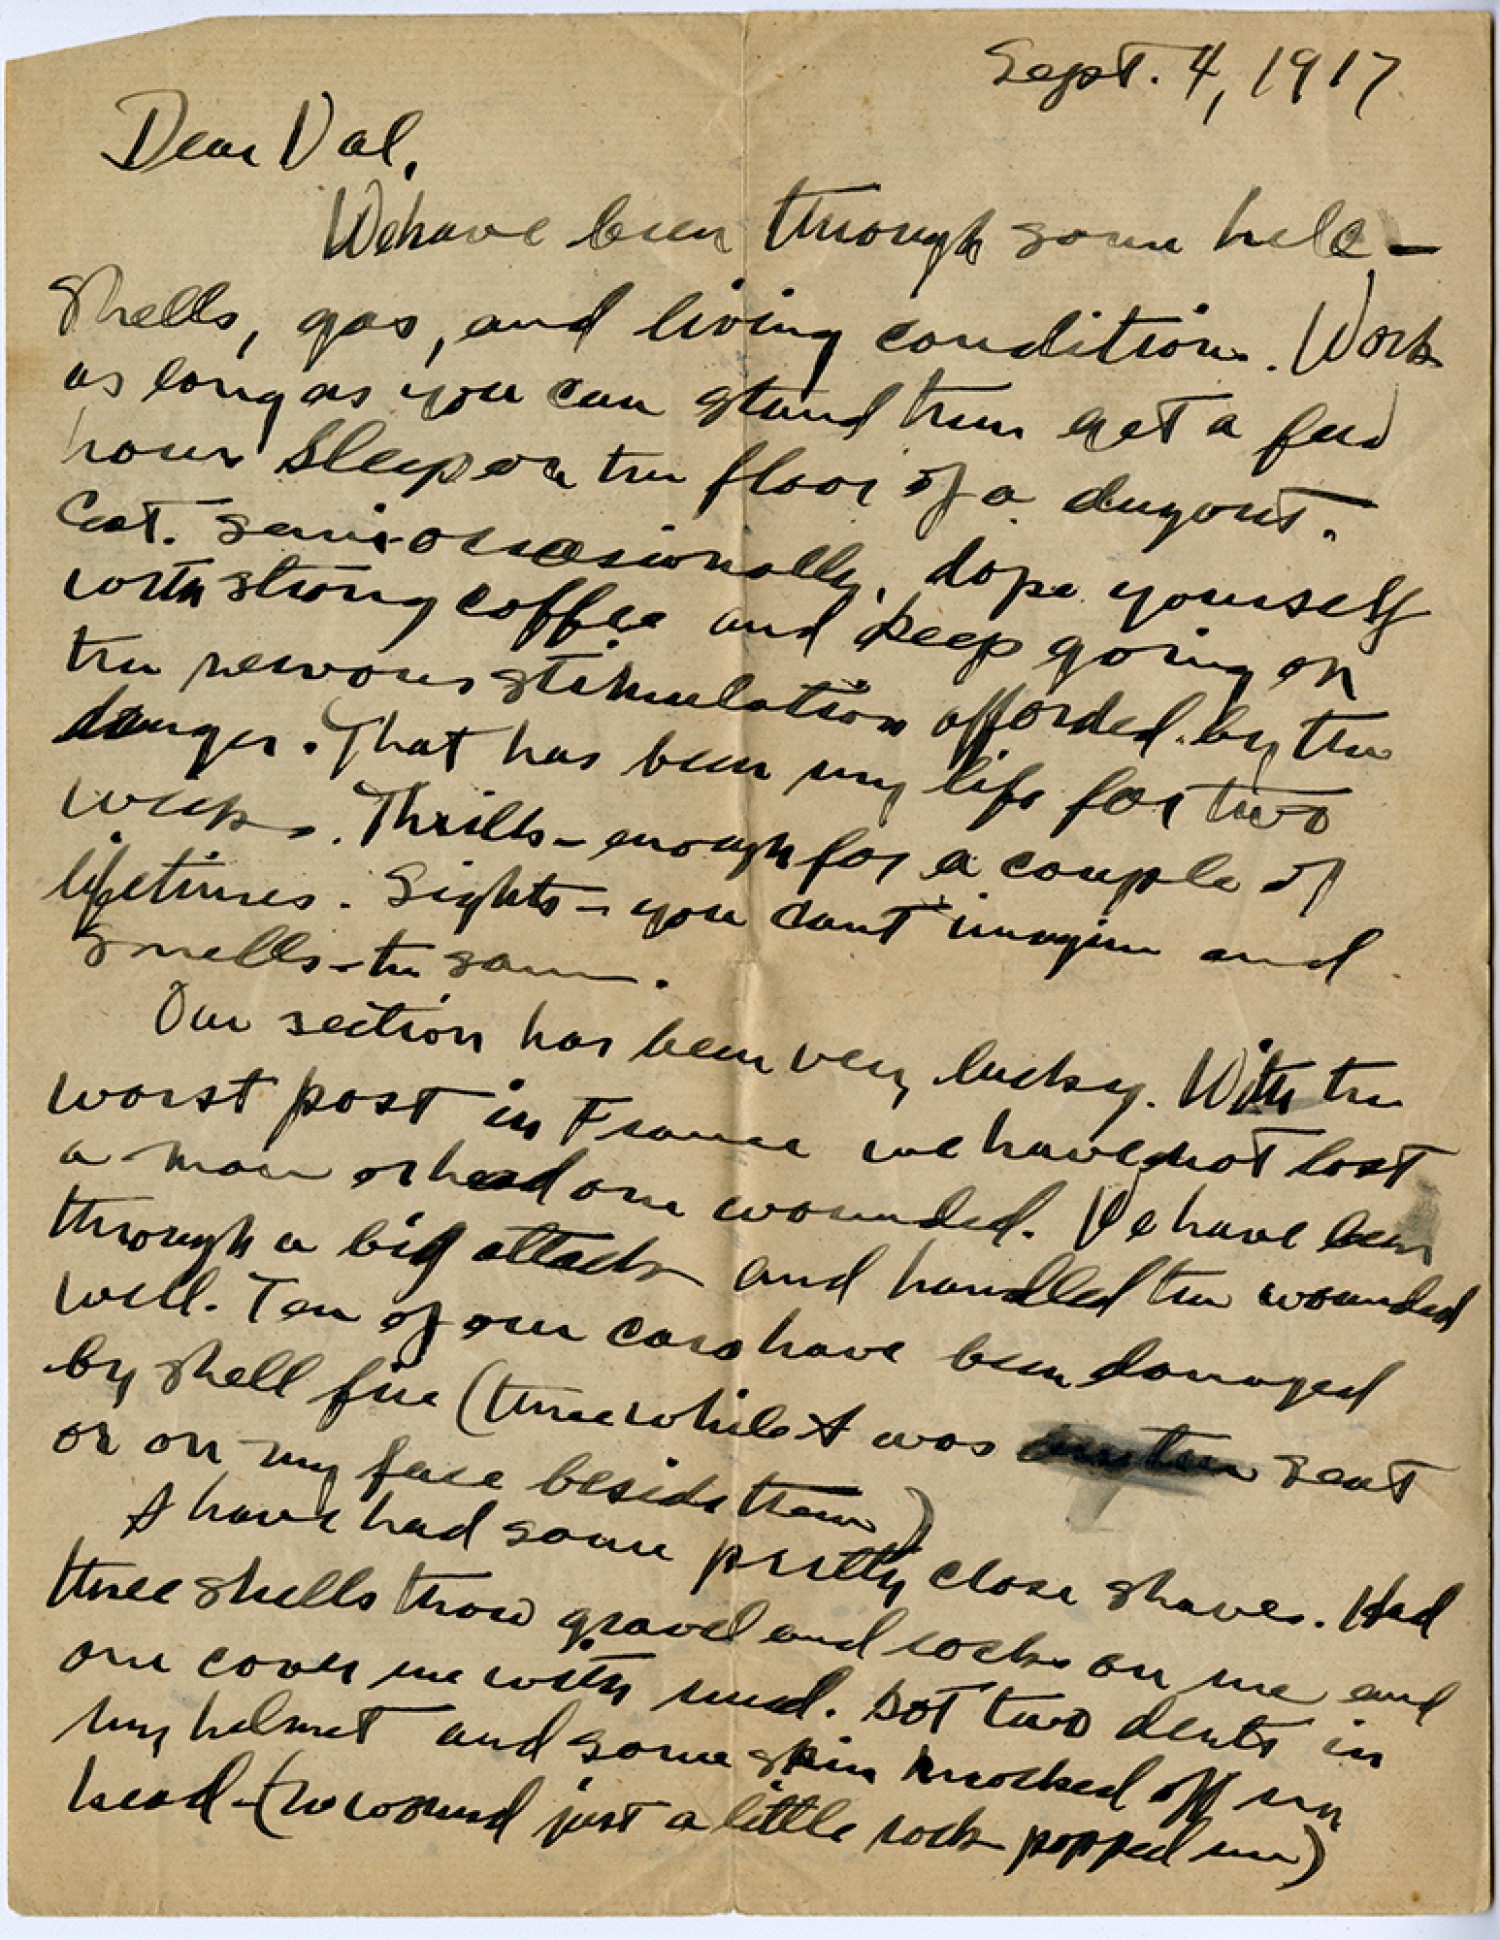 Sept. 4, 1917
Dear Val,
We have been through some hell –
Shells, gas, and living condition. Work
as long as you can stand then get a few
hours sleep on the floor of a dugout.
Eat semi-occasionally, dope yourself
with strong coffee and keep going on
the nervous stimulation afforded by the
danger. That has been my life for two
weeks. Thrills – enough for a couple of
lifetimes. Sights – you cant imagine and
smells – the same.
Our section has been very lucky. With the
worst post in France we have not lost
a man or had one wounded. We have been
through a big attack and handled the wounded
well. Ten of our cars have been damaged
by shell fire (three while I was seat
or on my face beside them)
I have had some pretty close shaves. Had
three shells throw gravel and rocks on me and
one cover me with mud. Got two dents in
my helmet and some skin knocked off my
head – (no wound just a little rock popped me)